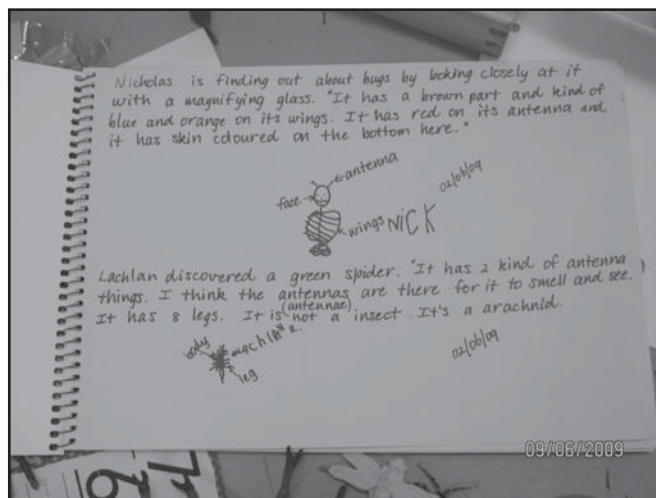 Nicholas is finding out about bugs by looking closely at it
with a magnifying glass. "It has a brown part and kind of
blue and orange on its wings. It has red on its antenna and
it has skin coloured on the bottom here."
antenna
face
02/06/09
wings NiCK
Lachlan discovered a green spider. "It has 2 kind of antenna
things. I think the antennas are there for it to smell and see.
(antennae)
It has 8 legs. It is not a insect. It's a arachnid.
body
leg
02/06/09
09/06/2009